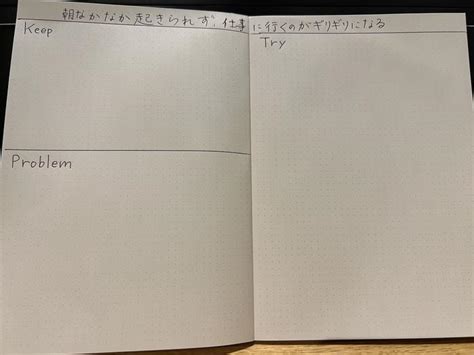 朝なかなか起きられず、仕事に行くのがギリギリになる
Keep
Problem
Try